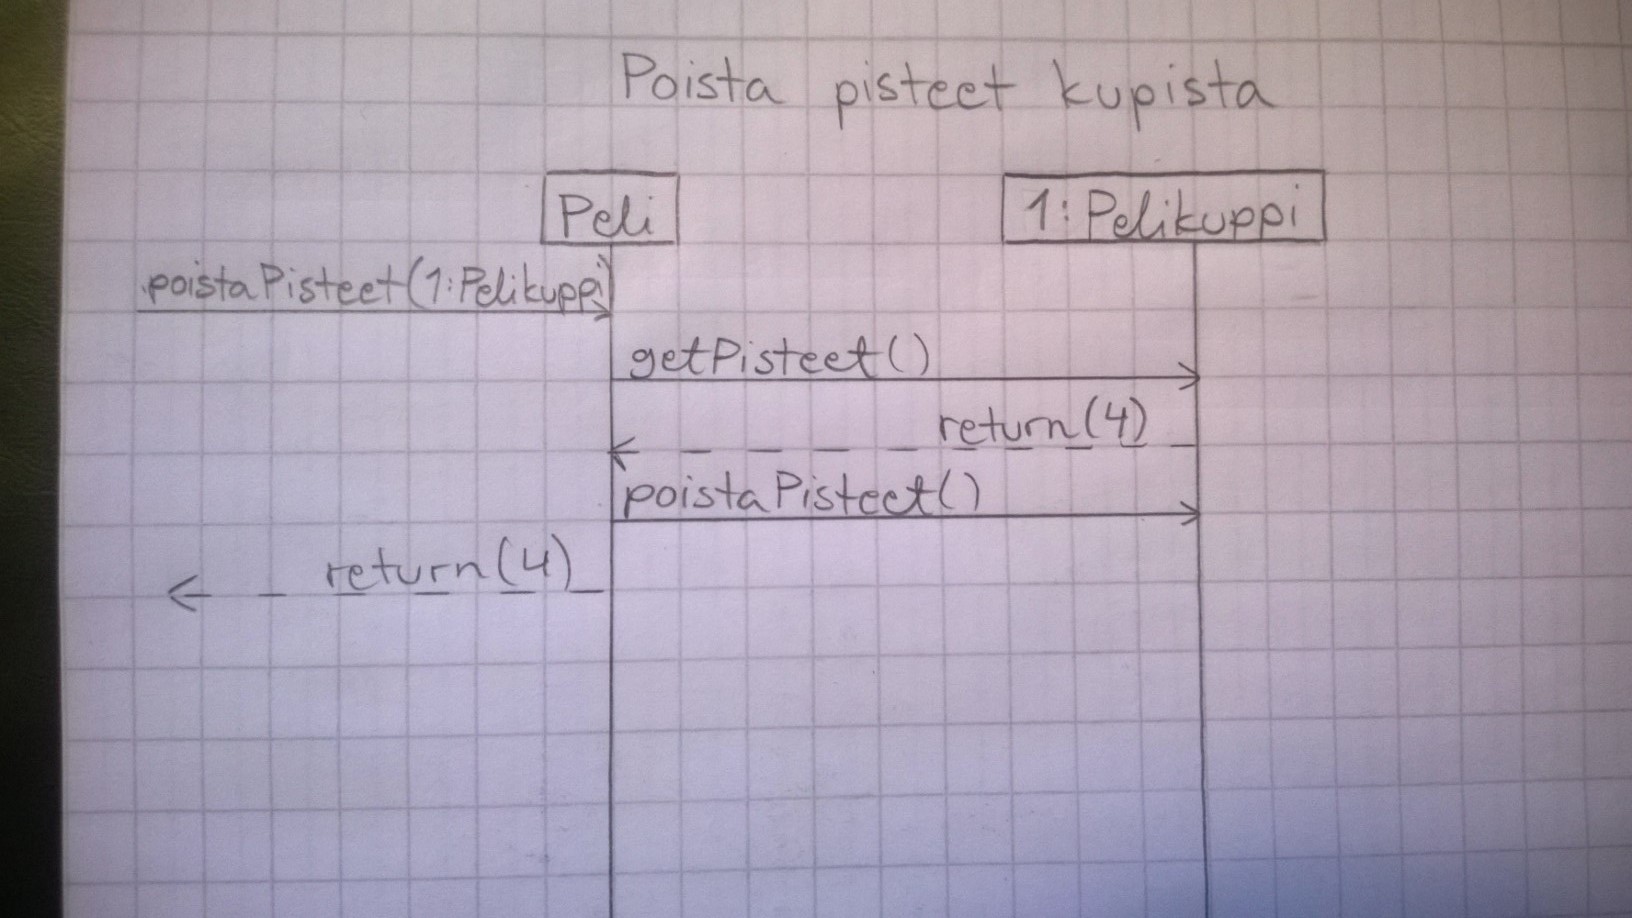 Poista pisteet kupista
Peli
1:Pelikuppi
poistaPisteet(1:Pelikuppi)
getPisteet()
return(4)
poistaPisteet()
return(4)